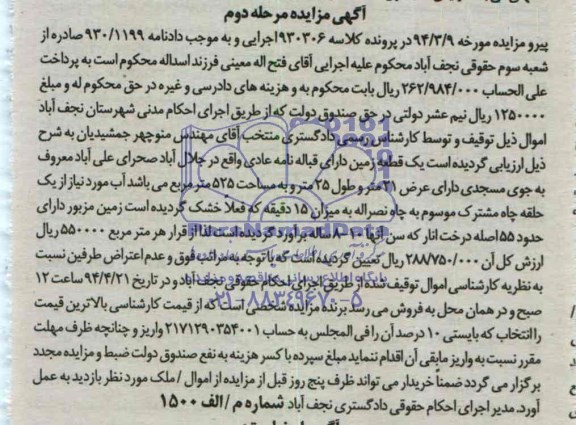 آگهی مزایده مرحله دوم
پیرو مزایده مورخه ۹۴/۳/۹ در پرونده کلاسه ۹۳۰۳۰۶ اجرایی و به موجب دادنامه ۹۳۰/۱۱۹۹ صادره از
شعبه سوم حقوقی نجف آباد محکوم علیه اجرایی آقای فتح اله معینی فرزند اسداله محکوم است به پرداخت
علی الحساب ۲۶۲/۹۸۴/۰۰۰ ریال بابت محکوم به و هزینه های دادرسی و غیره در حق محکوم له و مبلغ
۱۲۵۰۰۰۰ ریال نیم عشر دولتی در حق صندوق دولت که از طریق اجرای احکام مدنی شهرستان نجف آباد
اموال ذیل توقیف و توسط کارشناس رسمی دادگستری منتخب آقای مهندس منوچهر جمشیدیان به شرح
ذیل ارزیابی گردیده است یک قطعه زمین دارای قباله نامه عادی واقع در جلال آباد صحرای علی آباد معروف
به جوی مسجدی دارای عرض ۲۱ متر و طول ۲۵ متر و به مساحت ۵۲۵ متر مربع می باشد آب مورد نیاز از یک
حلقه چاه مشترک موسوم به چاه نصراله به میزان ۱۵ دقیقه که فعلاً خشک گردیده است زمین مزبور دارای
حدود ۵۵ اصله درخت انار که سن آنها ۱۰-۸ ساله برآورد گردیده است لذا از قرار هر متر مربع ۵۵۰۰۰۰ ریال
ارزش کل آن ۲۸۸/۷۵۰/۰۰۰ ریال تعیین گردیده است که با توجه به مراتب فوق و عدم اعتراض طرفین نسبت
به نظریه کارشناسی اموال توقیف شده از طریق اجرای احکام حقوقی نجف آباد و در تاریخ ۹۴/۴/۲۱ ساعت ۱۲
صبح و در همان محل به فروش می رسد برنده مزایده شخصی است که از قیمت کارشناسی بالاترین قیمت
را انتخاب که بایستی ۱۰ درصد آن را فی المجلس به حساب ۲۱۷۱۲۹۰۳۵۴۰۰۱ واریز و چنانچه ظرف مهلت
مقرر نسبت به واریز مابقی آن اقدام ننماید مبلغ سپرده با کسر هزینه به نفع صندوق دولت ضبط و مزایده مجدد
برگزار می گردد ضمناً خریدار می تواند ظرف پنج روز قبل از مزایده از اموال / ملک مورد نظر بازدید به عمل
آورد. مدیر اجرای احکام حقوقی دادگستری نجف آباد شماره م / الف ۱۵۰۰
۰۲۱-۸۸۳۴۹۶۷۰-۵